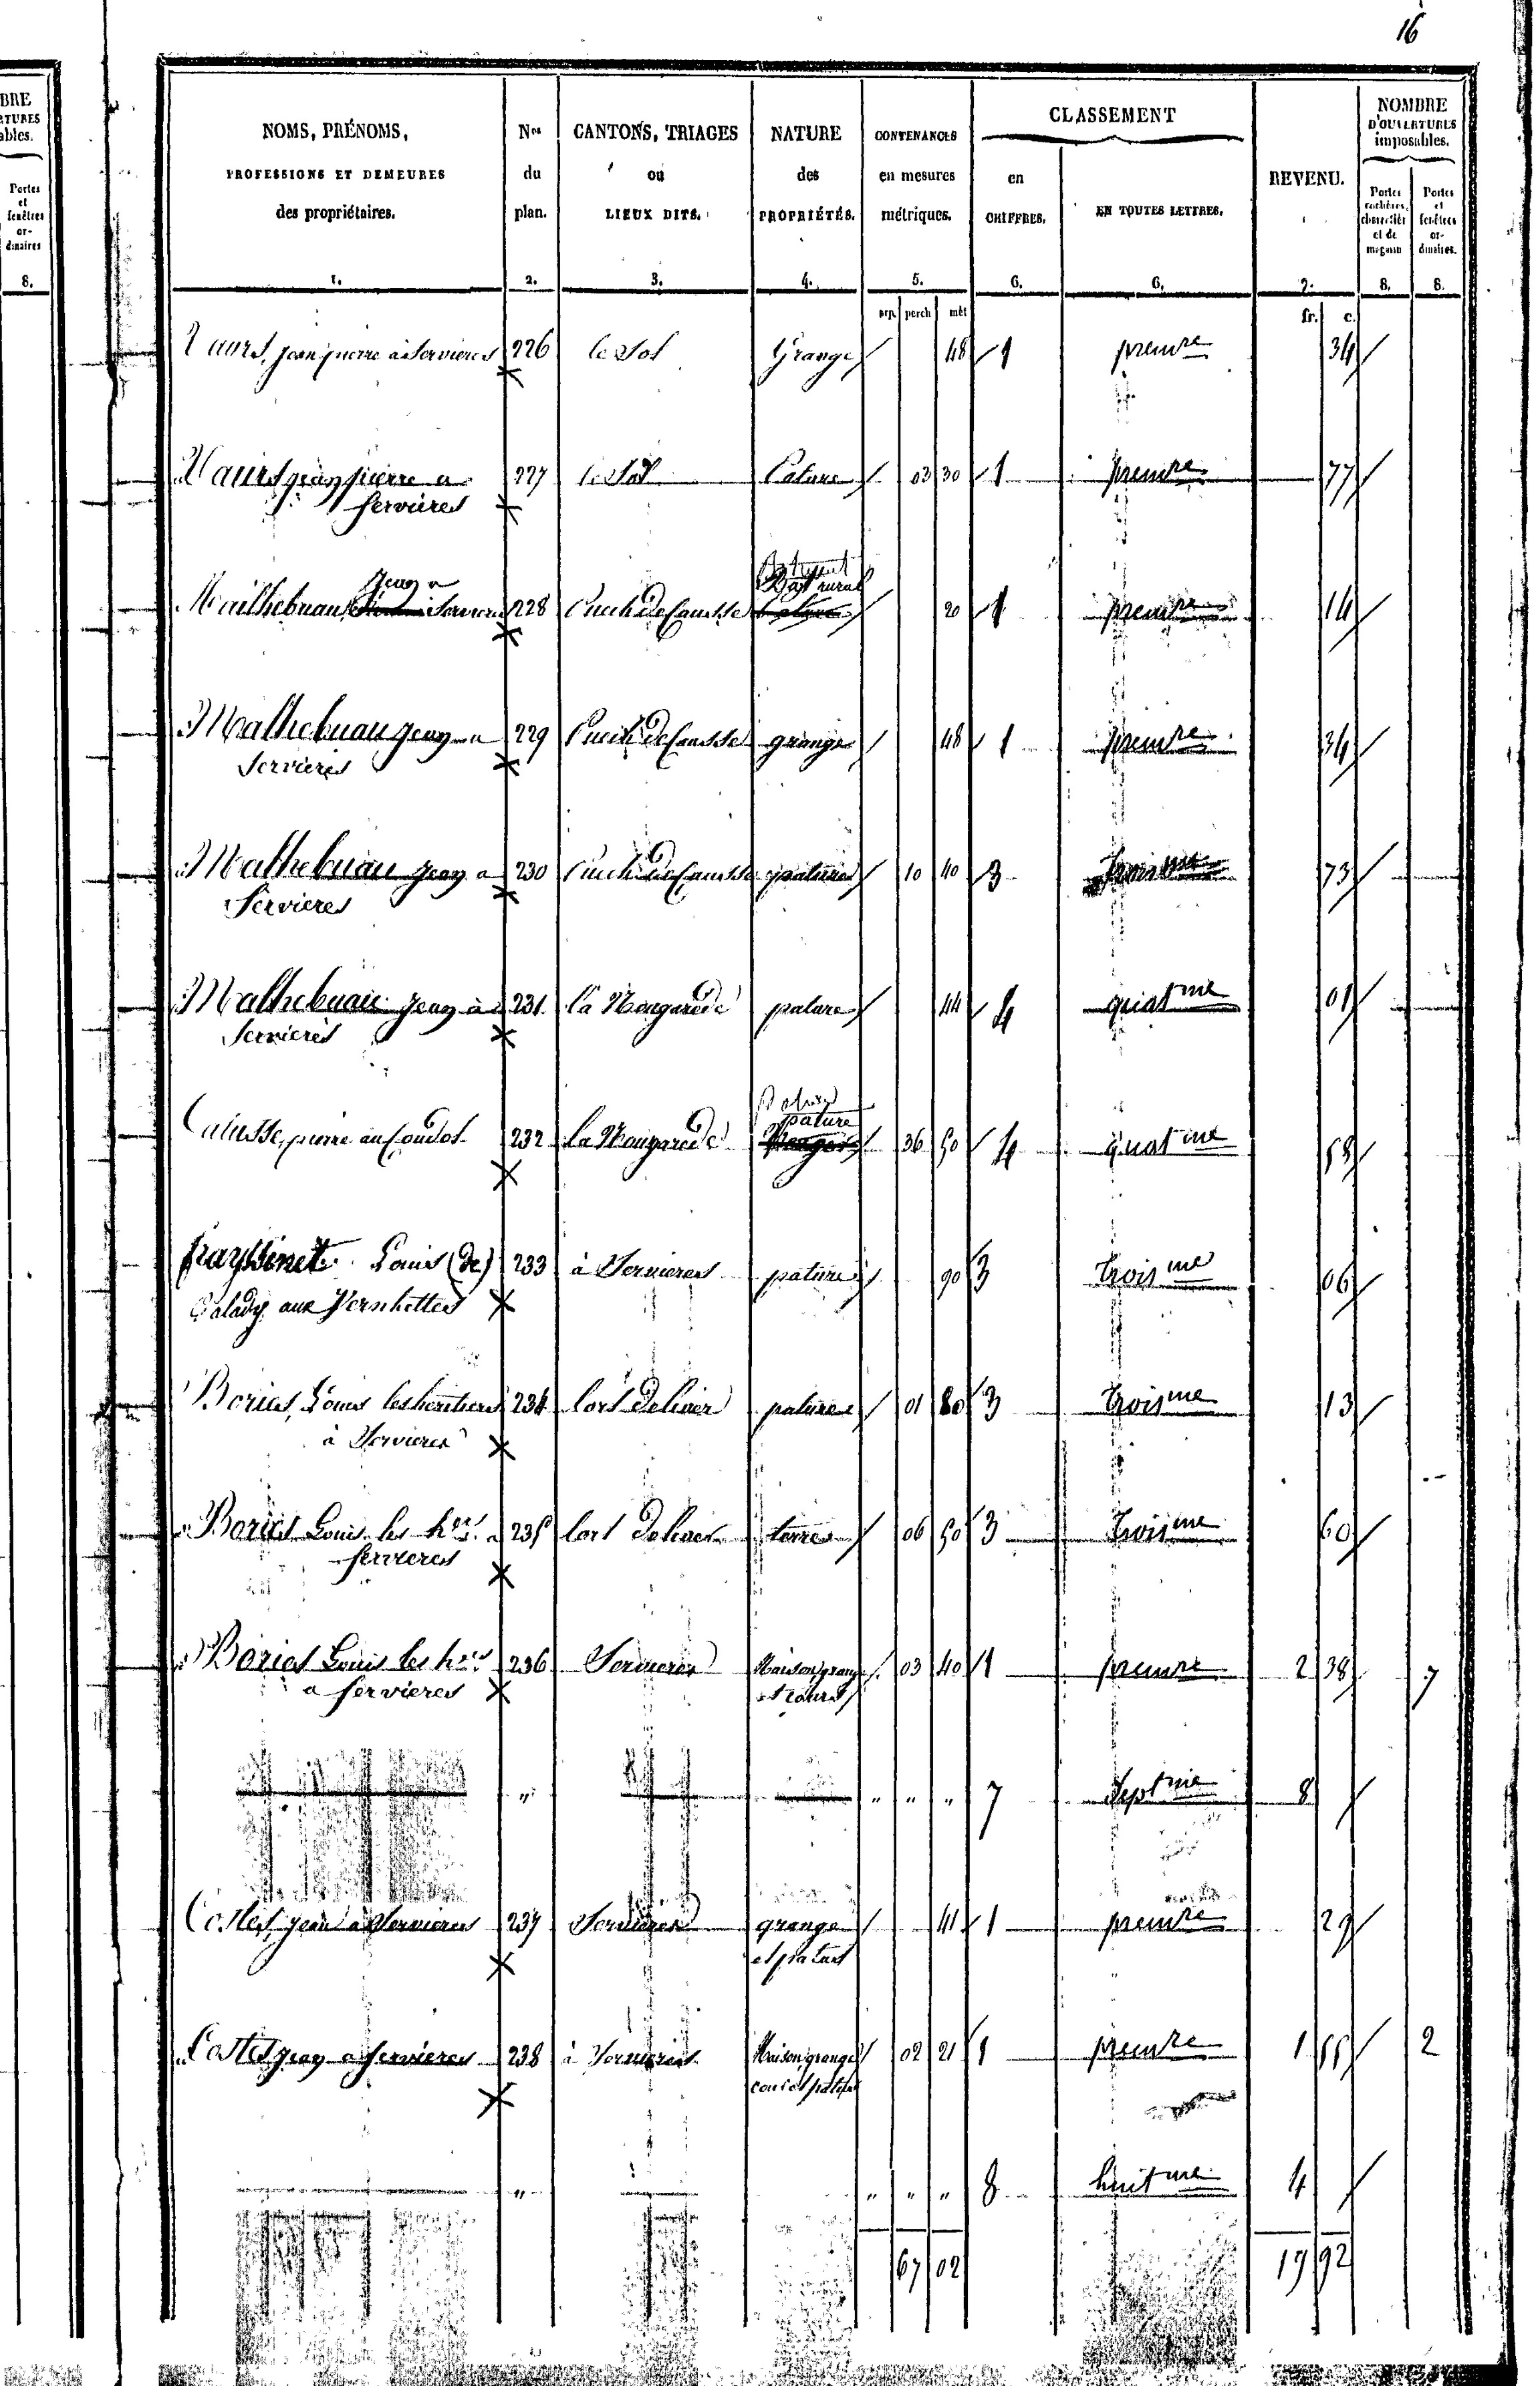 16
BRE
ables.
Portes
et
fenêtres
or-
dinaires
8.
NOMS, PRÉNOMS,
PROFESSIONS ET DEMEURES
des propriétaires.
1.
Nos
du
plan.
2.
CANTONS, TRIAGES
ou
LIEUX DITS.
3.
NATURE
des
PROPRIÉTÉS.
4.
CONTENANCES
en mesures
métriques.
5.
CLASSEMENT
en
CHIFFRES.
6.
EN TOUTES LETTRES.
6.
REVENU.
7.
NOMBRE
D'OUVERTURES
imposables.
Portes
cochères,
charretières
et de
magasin
8.
Portes
et
fenêtres
or-
dinaires.
8.
arp. perch mèt fr. c.
jean pierre à Servieres 226 le Sol Grange 48 1 premre 34
pierre a 227 le Sol Pature 03 30 1 premre 77
Servieres
Jean a
Bat rural
228 Puech de Causse 20 1 premre 14
Malhebuau Jean a 229 Puech de Causse grange 48 1 premre 34
Servieres
Malhebuau Jean a 230 Puech de Causse pature 10 40 3 troisme 73
Servieres
Malhebuau Jean à 231 la Nougarede pature 44 4 quatme 01
Servieres
pature
pierre au 232 la Nougarede 36 50 4 quatme 58
frayssinet Louis (de) 233 à Servieres pature 90 3 troisme 06
Valady aux Vernhettes
Bories, Louis les heritiers 234 pature 01 80 3 troisme 13
à Servieres
Bories Louis les hers a 235 terre 06 50 3 troisme 60
Servieres
Bories Louis les hers 236 Servieres Maison, grange 03 40 1 premre 2 38 7
a Servieres
" " " " 7 septme 8
Costes, jean à Servieres 237 Servieres grange 41 1 premre 29
et patus
Costes Jean a Servieres 238 à Servieres Maison, grange 02 21 1 premre 1 55 2
cour et patus
" " " " 8 huitme 4
67 02 19 92